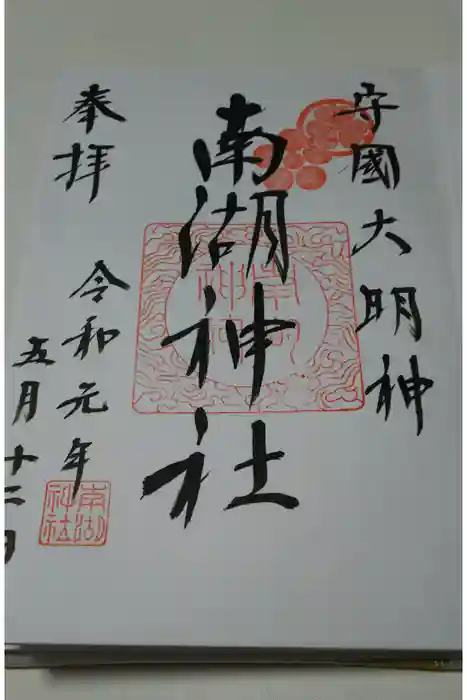 守國大明神
南湖神社
奉拝
令和元年
五月十二日
南湖
神社
南湖
神社